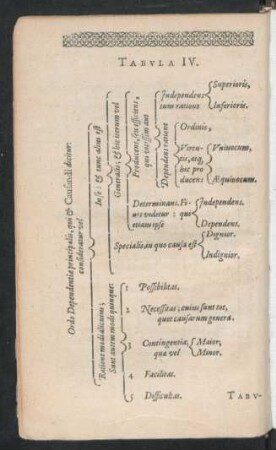 TABVLA IV.
Ordo Dependentiæ principalis, qui & Causandi dicitur:
consideratur vel
In se; & tunc alius est
Generalis; & hic iterum vel
Producens, seu efficiens,
quo necessum aut
Independens
cum ratione
Superioris,
Inferioris.
Dependens ratione
Ordinis,
Virtutis, atq,
hic producens
Vniuocum,
Æquiuocum.
Determinans.
quo
etiam ipse
Independens.
Dependens.
Specialis: in quo causa est
Dignior.
Indignior.
Ratione modi alicuius;
Sunt autem modi quinque:
1 Possibilitas.
2 Necessitas; cuius sunt tot,
quot causarum genera.
3 Contingentia;
qua vel
Maior,
Minor.
4 Facilitas.
5 Difficultas.
TABV-